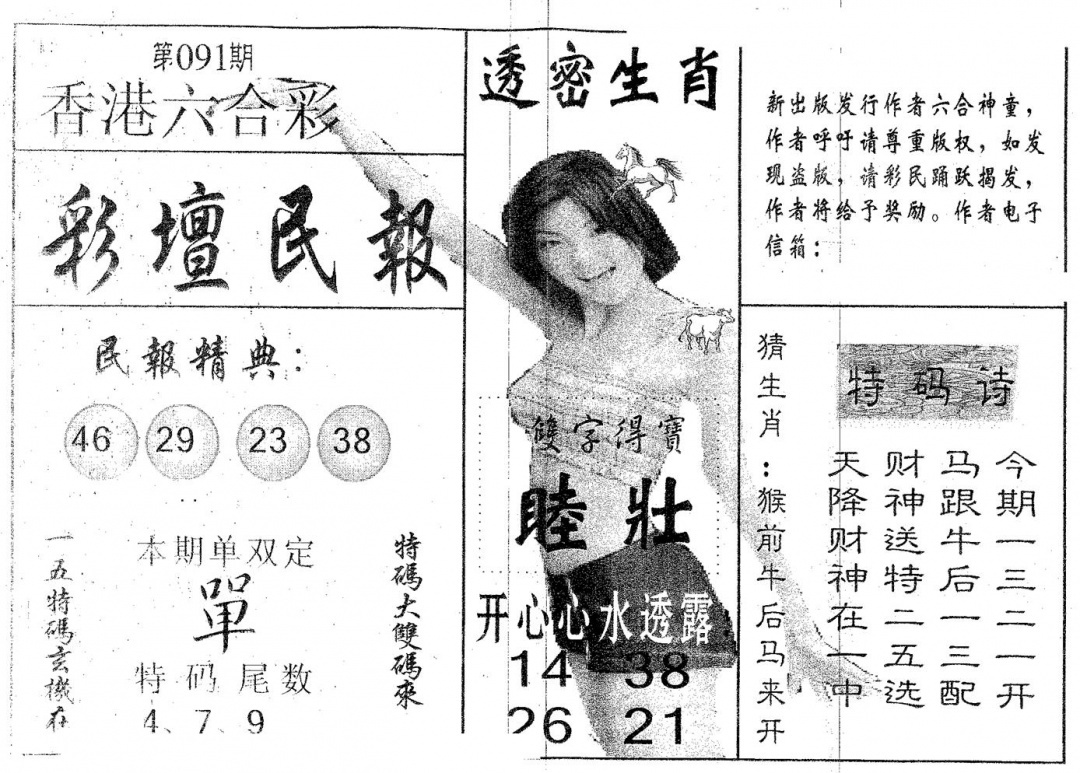 第091期
香港六合彩
彩壇民報
民報精典：
46 29 23 38
一五特碼玄機在
本期单双定
單
特码尾数
4、7、9
特碼大雙碼來
透密生肖
雙字得寶
睦壯
开心心水透露
14 38
26 21
新出版发行作者六合神童，
作者呼吁请尊重版权，如发
现盗版，请彩民踊跃揭发，
作者将给予奖励。作者电子
信箱：
猜生肖：猴前牛后马来开
特码诗
今期一三二一开
马跟牛后一三配
财神送特二五选
天降财神在一中